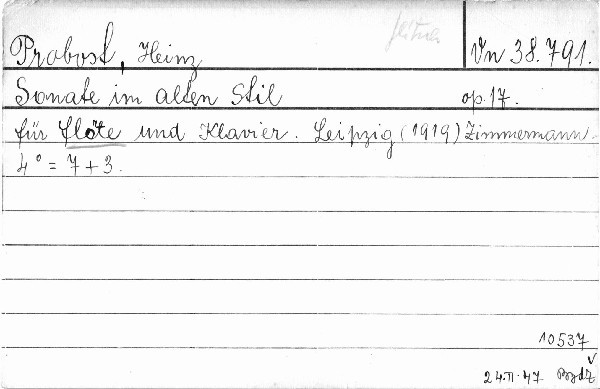 Probost, Heinz Vn 38.791.
Sonate im alten Stil op. 17.
für Flöte und Klavier. Leipzig (1919) Zimmermann.
4° = 7 + 3.
10537
24.II.47